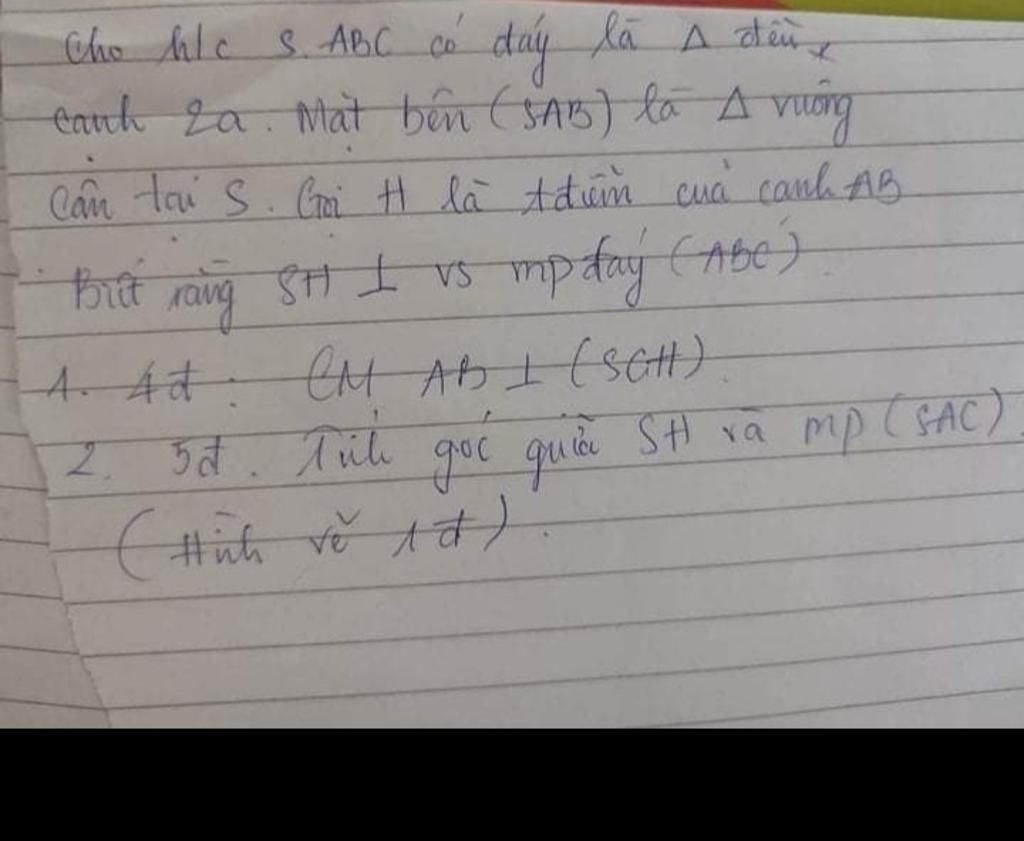 Cho h/c S.ABC có đáy là Δ đều
cạnh 2a. Mặt bên (SAB) là Δ vuông
cân tại S. Gọi H là tđiểm của cạnh AB
Biết rằng SH ⊥ vs mp đáy (ABC).
1. 4đ: CM AB ⊥ (SCH).
2. 5đ. Tính góc giữa SH và mp (SAC).
(Hình vẽ 1đ).